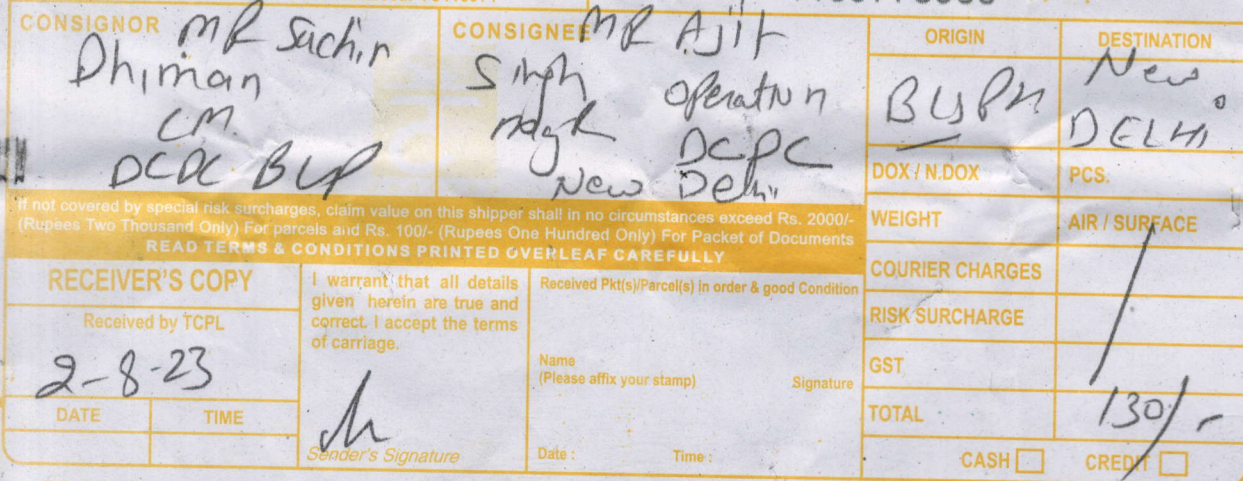 CONSIGNOR MR Sachin
Dhiman
CM.
DCDC BLP
CONSIGNEE MR Ajit
Singh operation
DCPC
New Delhi
ORIGIN
DESTINATION
New
DELHI
DOX / N.DOX
PCS.
WEIGHT
AIR / SURFACE
COURIER CHARGES
RISK SURCHARGE
GST
TOTAL
130/-
CASH
CREDIT
If not covered by special risk surcharges, claim value on this shipper shall in no circumstances exceed Rs. 2000/-
(Rupees Two Thousand Only) For parcels and Rs. 100/- (Rupees One Hundred Only) For Packet of Documents
READ TERMS & CONDITIONS PRINTED OVERLEAF CAREFULLY
RECEIVER'S COPY
Received by TCPL
2-8-23
DATE
TIME
I warrant that all details
given herein are true and
correct. I accept the terms
of carriage.
Sender's Signature
Received Pkt(s)/Parcel(s) in order & good Condition
Name
(Please affix your stamp)
Signature
Date :
Time :